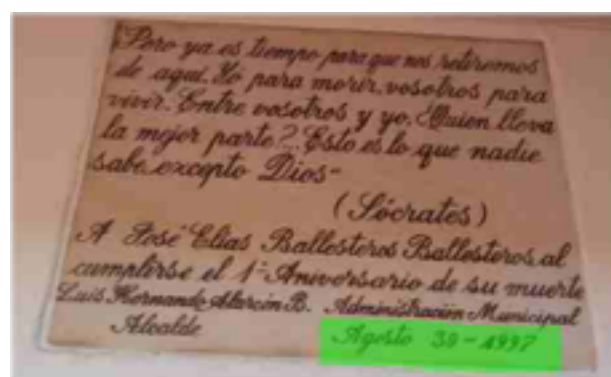 Pero ya es tiempo para que nos retiremos
de aquí. Yo para morir, vosotros para
vivir. Entre vosotros y yo, ¿Quien lleva
la mejor parte? Esto es lo que nadie
sabe, excepto Dios-
(Sócrates)
A José Elias Ballesteros Ballesteros, al
cumplirse el 1º Aniversario de su muerte
Luis Hernando Alarcón B. Administración Municipal
Alcalde Agosto 30-1997